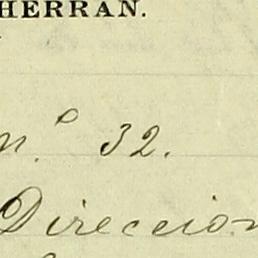 HERRAN.
n.º 32.
Direccion